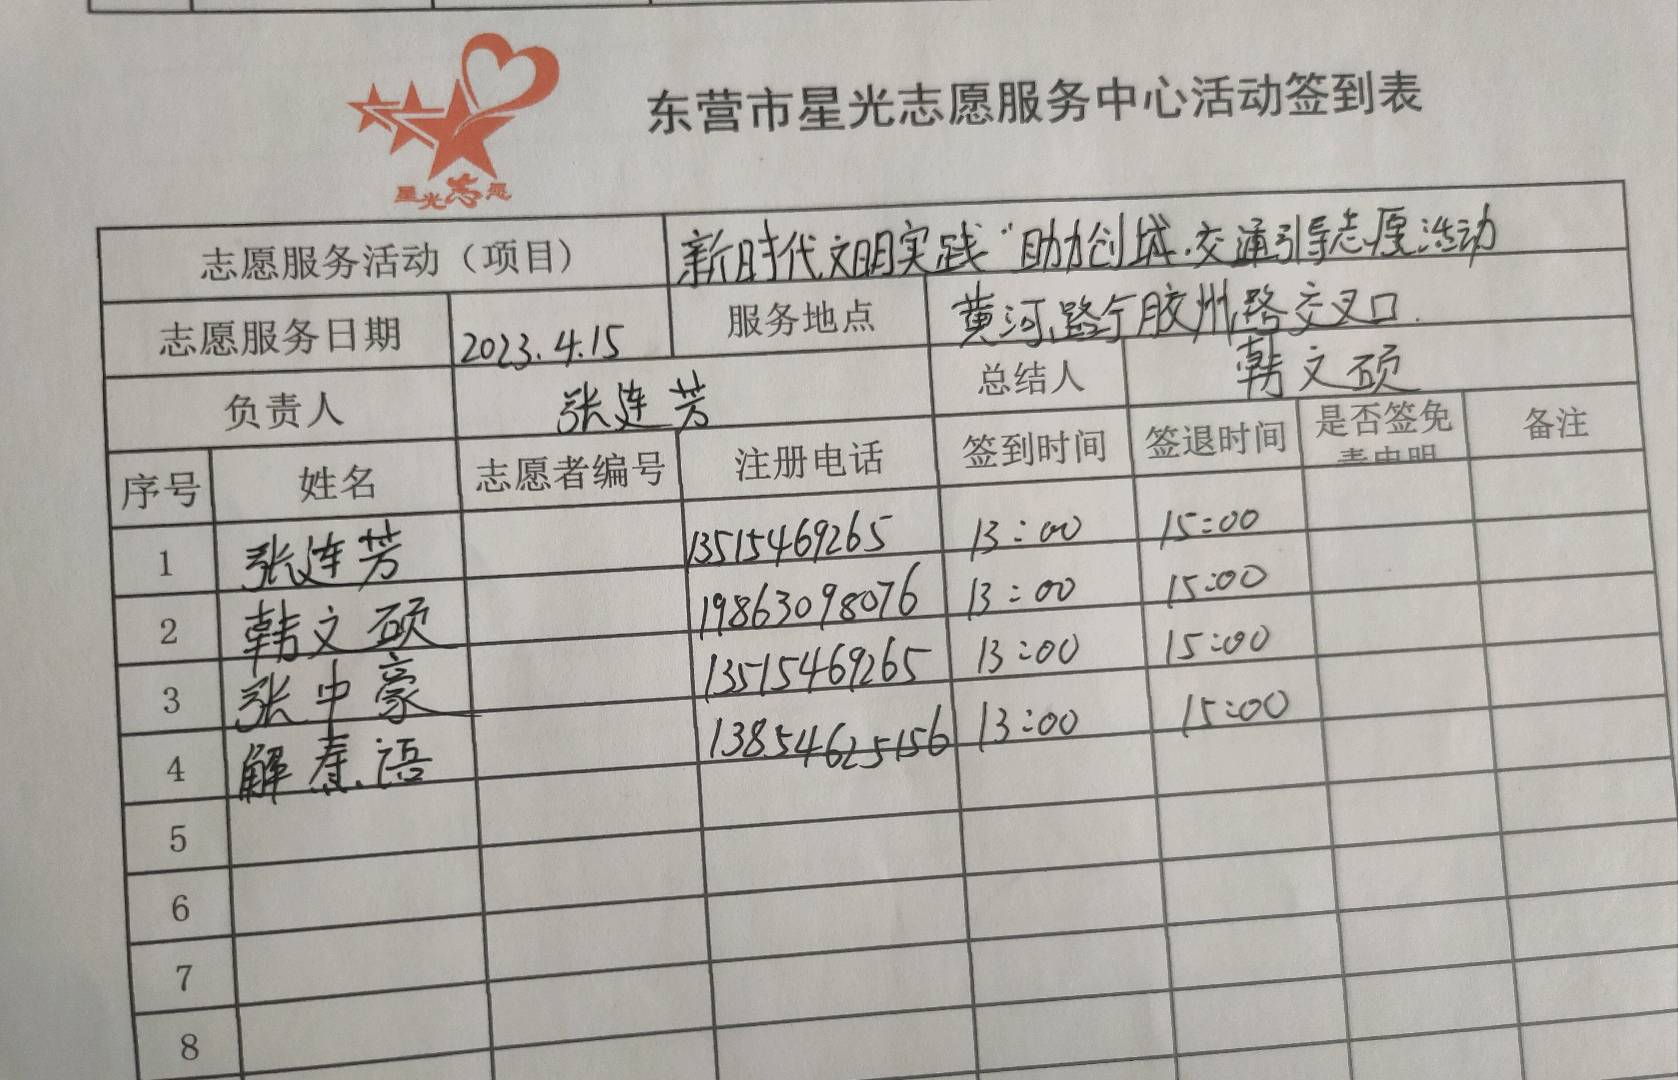 星光志愿
东营市星光志愿服务中心活动签到表
志愿服务活动（项目） 新时代文明实践“助力创城·交通引导志愿活动
志愿服务日期 2023.4.15 服务地点 黄河路与胶州路交叉口
负责人 张连芳 总结人 韩文硕
序号 姓名 志愿者编号 注册电话 签到时间 签退时间 是否签免责申明 备注
1 张连芳 13515469265 13:00 15:00
2 韩文硕 19863098076 13:00 15:00
3 张中豪 13515469265 13:00 15:00
4 解 语 13854625156 13:00 15:00
5
6
7
8